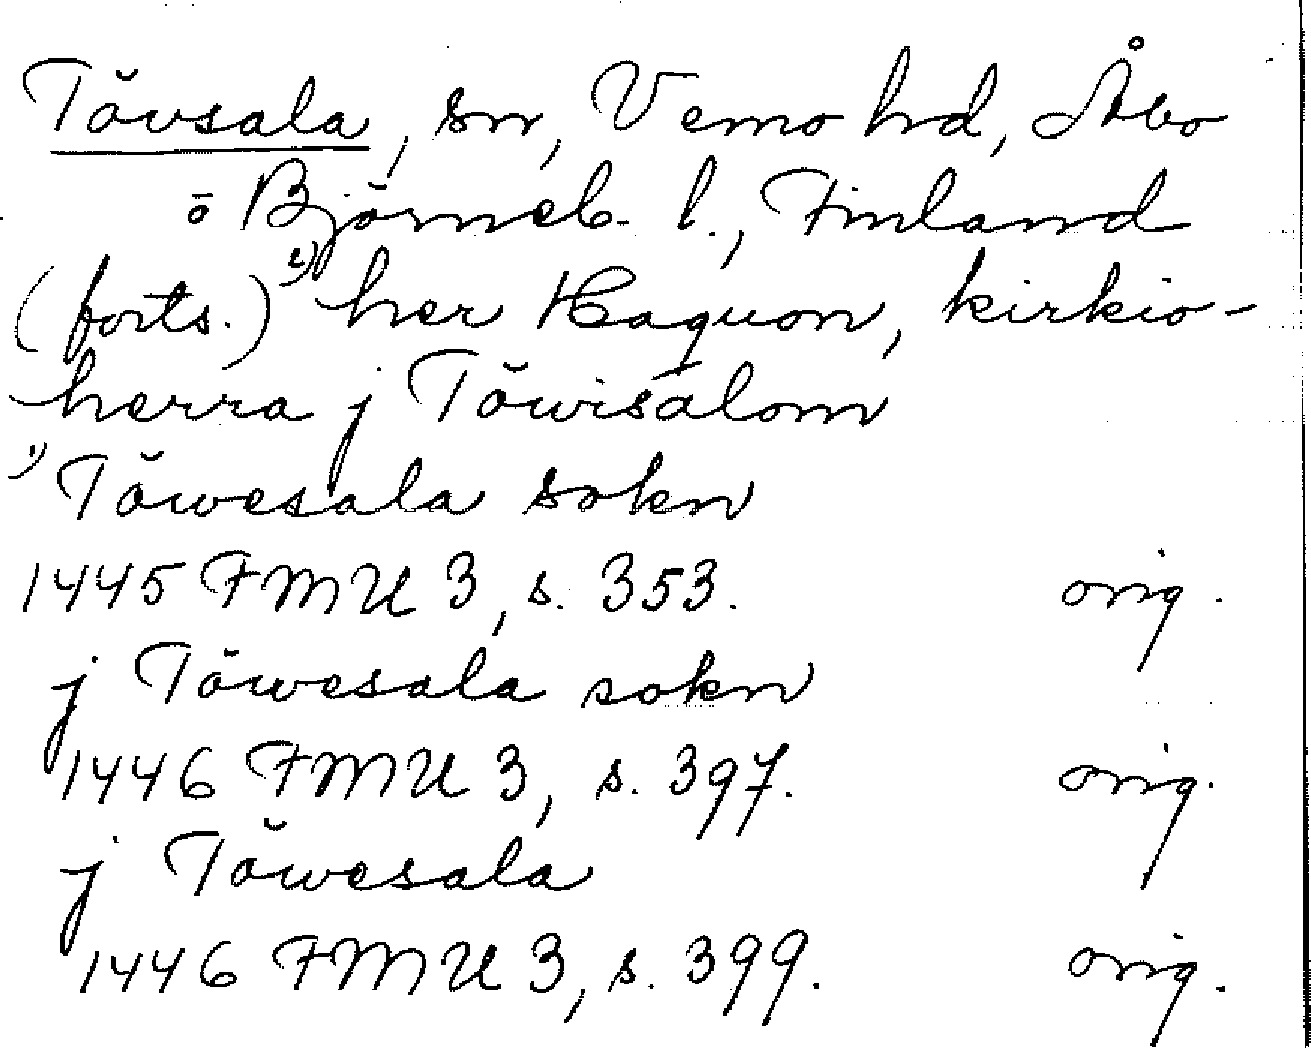 Tövsala, sn, Vemo hd, Åbo
o Björneb. l., Finland
(forts.) 1) her Haquon, kirkio-
herra j Töwisalom
1) Töwesala sokn
1445 FMU 3, s. 353. orig.
j Töwesala sokn
1446 FMU 3, s. 397. orig.
j Töwesala
1446 FMU 3, s. 399. orig.